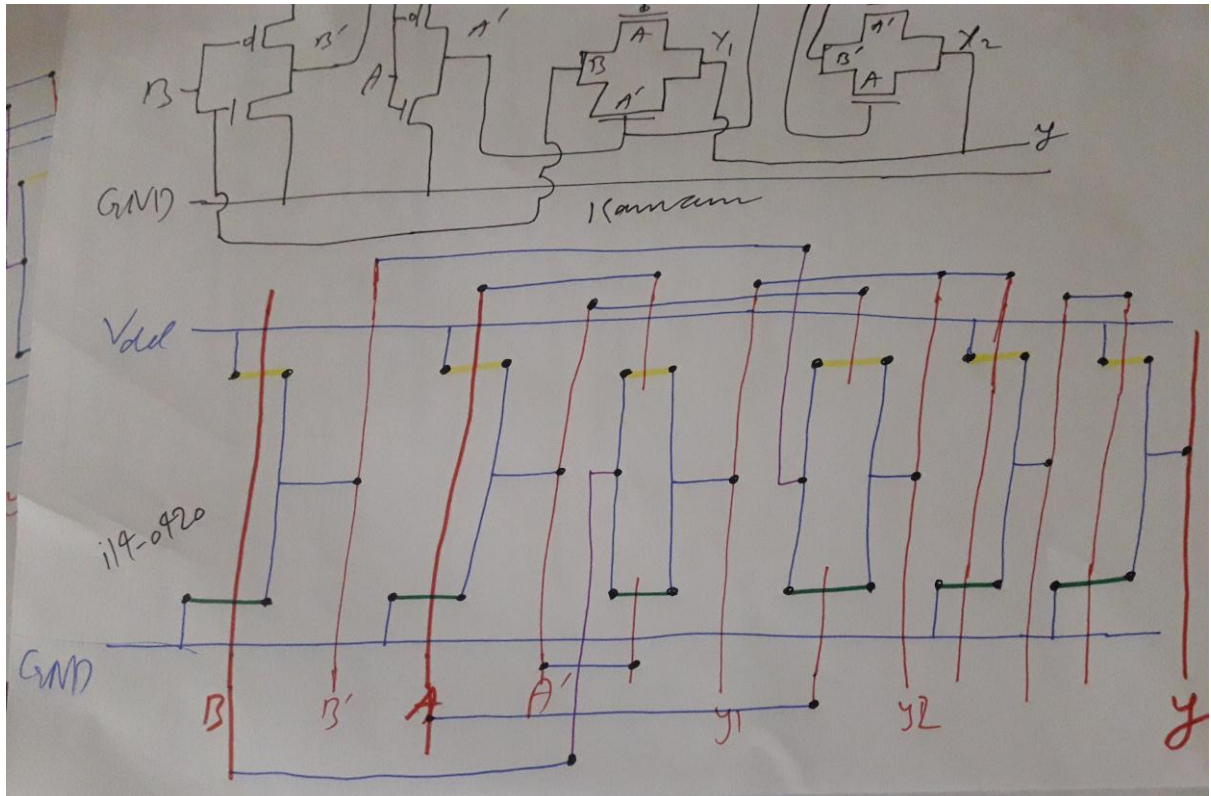 B B' A A' B A A' Y1 B' A' A Y2 y
GND
Kamram
Vdd
i14-0420
GND
B B' A A' y1 y2 y